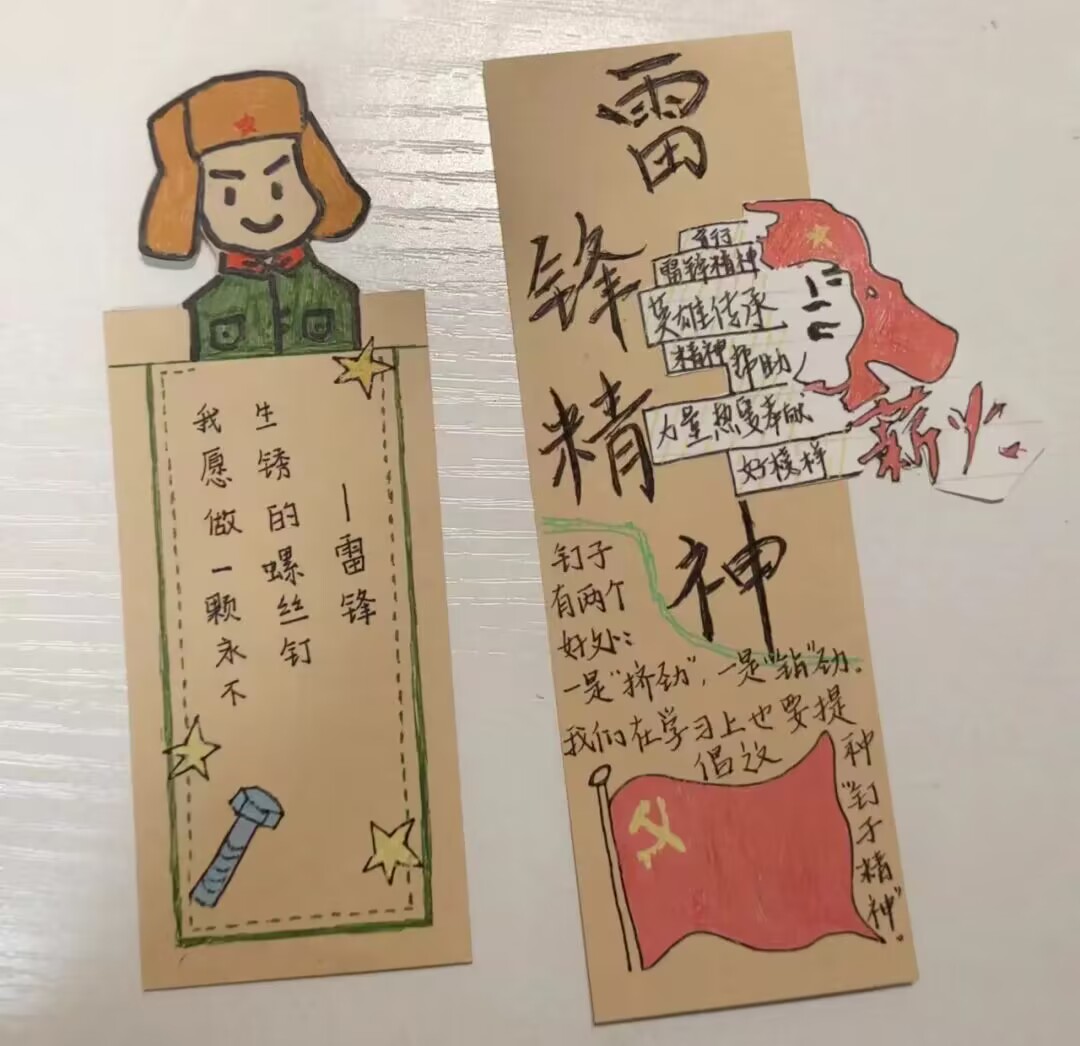 我愿做一颗永不
生锈的螺丝钉
—雷锋
雷锋精神
雷锋精神
英雄传承
精神帮助
力量奉献
好榜样
薪火
钉子
有两个
好处：
一是"挤劲"，一是"钻"劲。
我们在学习上也要提
倡这
种"钉子精神"。